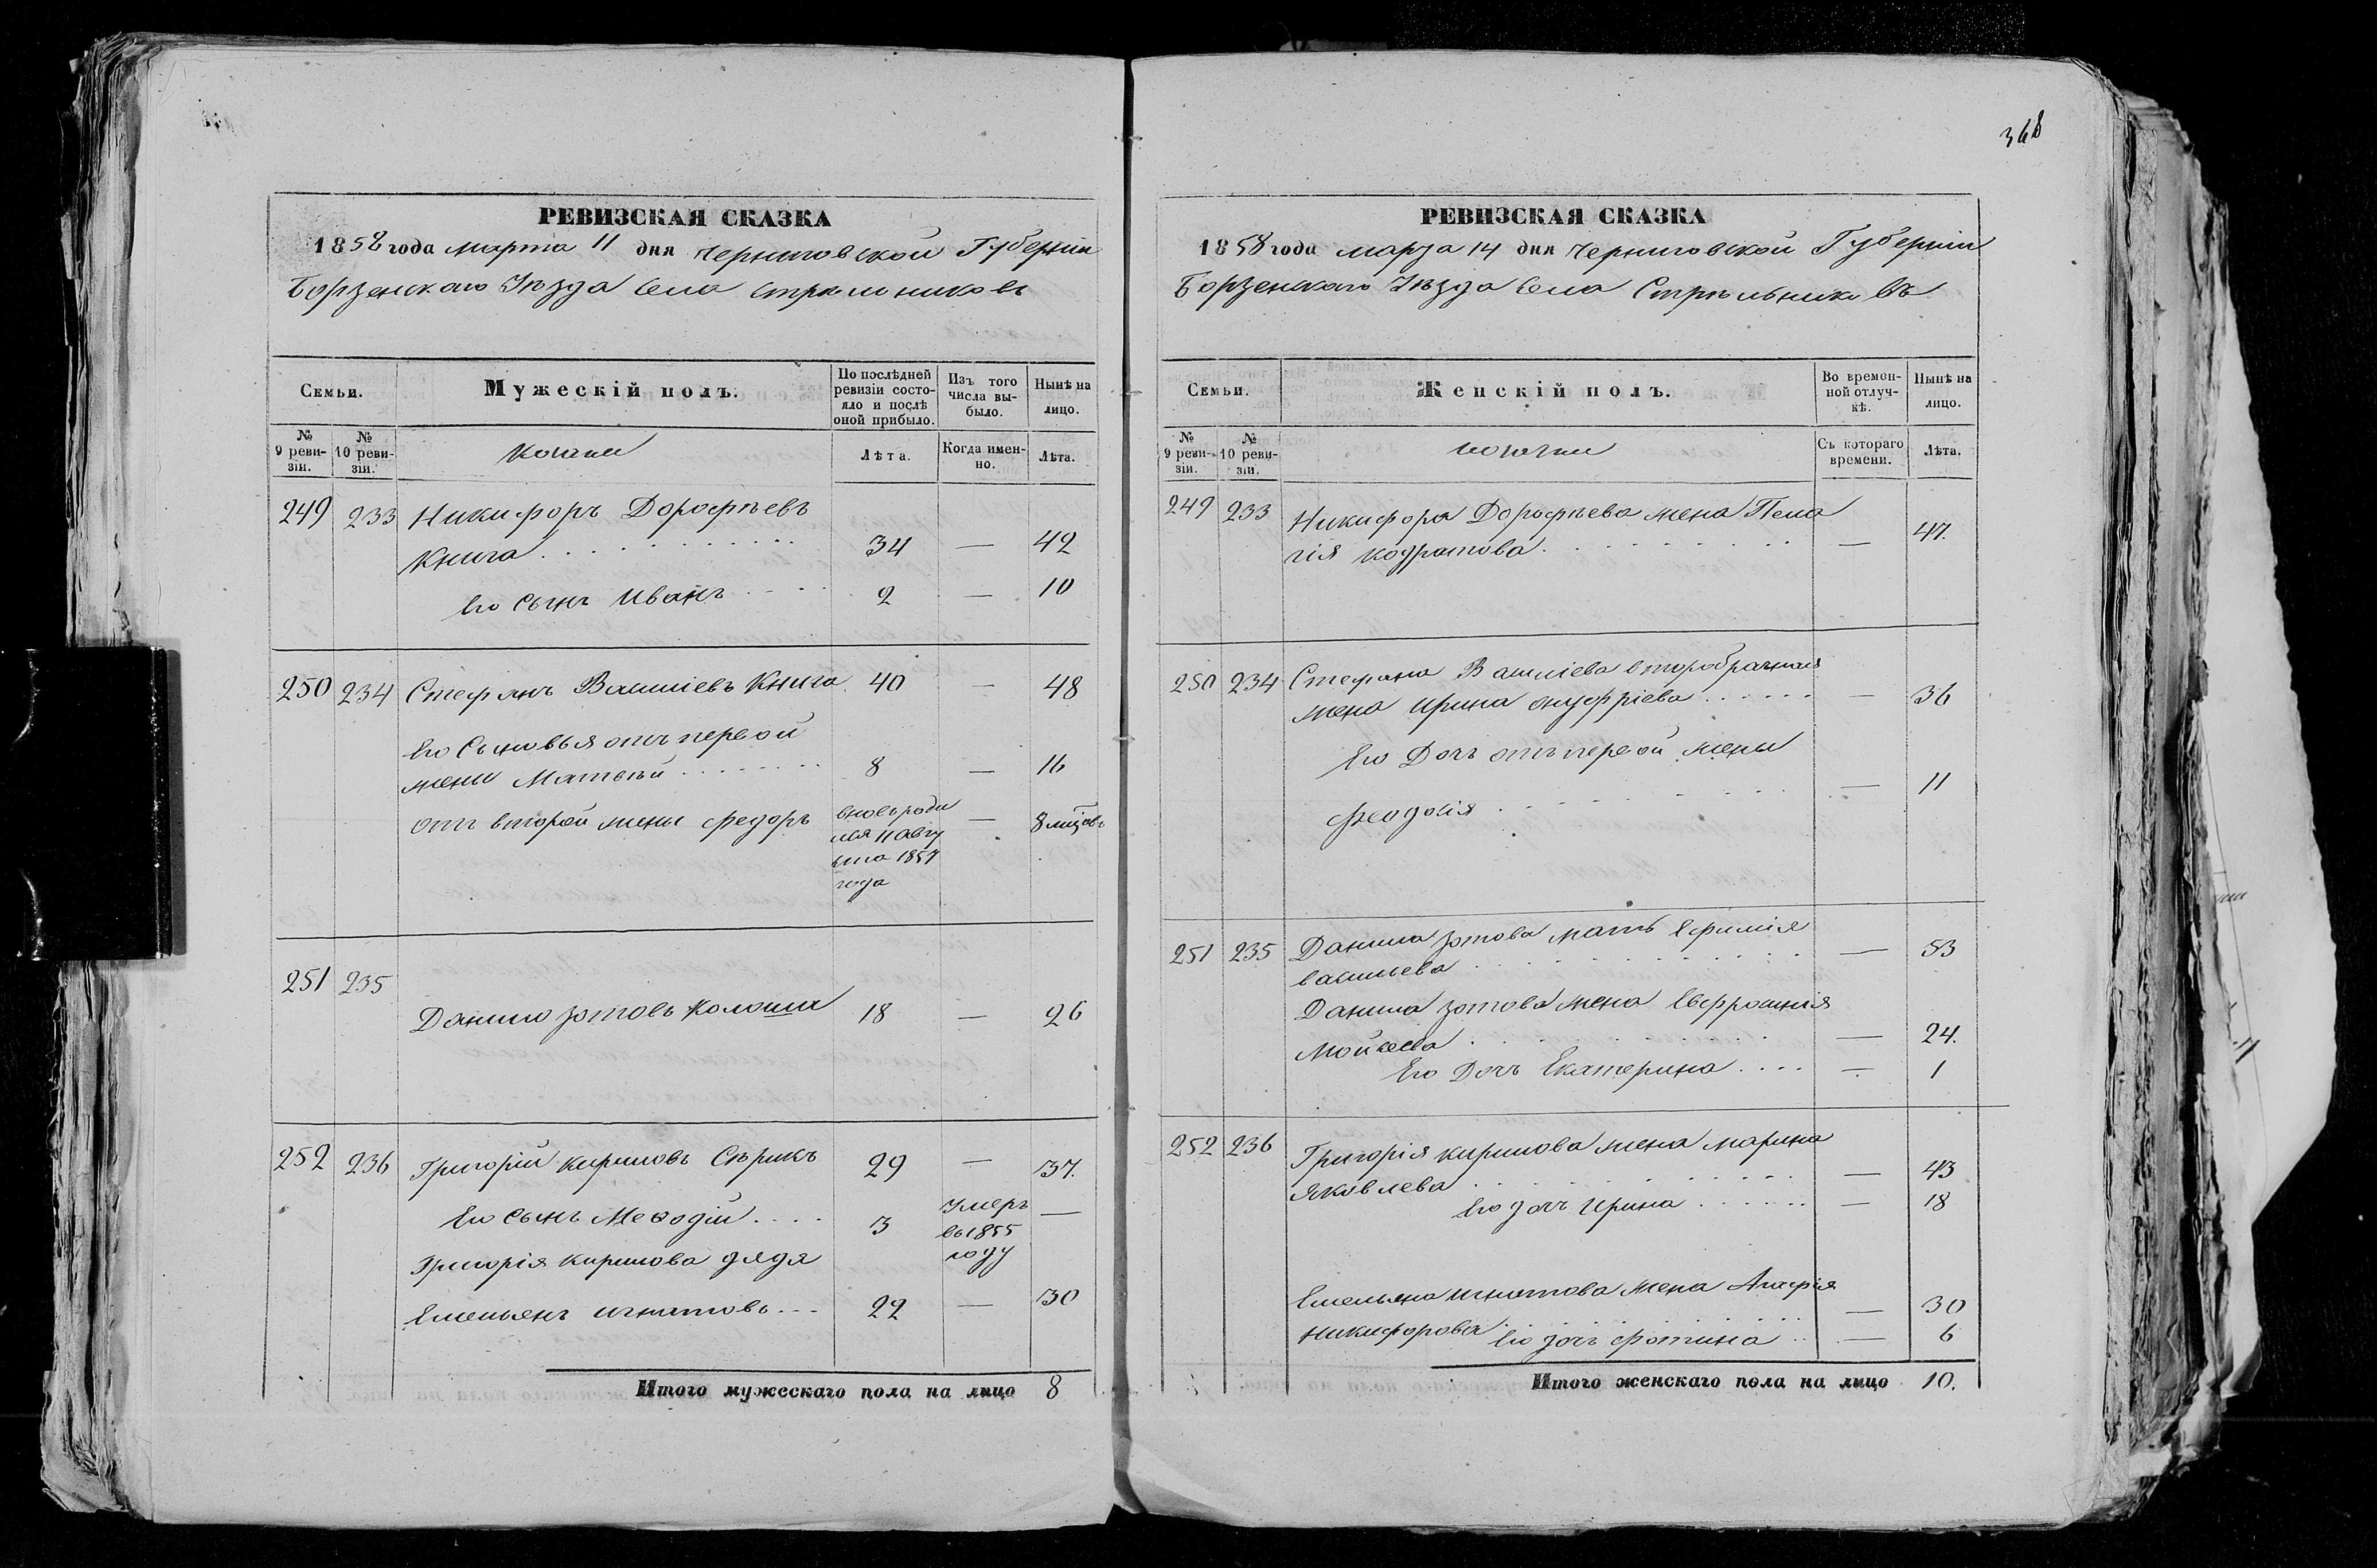 368
РЕВИЗСКАЯ СКАЗКА
1858 года марта 11 дня Черниговской Губерніи
Борзенскаго Уѣзда Села Стрѣльниковъ
Семьи.
Мужескій полъ.
По послѣдней ревизіи состояло и послѣ оной прибыло.
Изъ того числа выбыло.
Нынѣ на лицо.
№ 9 ревизіи.
№ 10 ревизіи.
Лѣта.
Когда именно.
Лѣта.
249 233 Никифоръ Дорофѣевъ
Книга 34 — 42
Его Сынъ Иванъ 2 — 10
250 234 Стефанъ Василіевъ Книга 40 — 48
Его Сыновья отъ первой
жены Матвѣй 8 — 16
отъ второй жены Федоръ вновь роди — 8 мѣсяцовъ
лся 11 авгу
ста 1857
года
251 235
Данило Зотовъ Колоша 18 — 26
252 236 Григорій Кириловъ Сѣрикъ 29 — 37.
Его Сынъ Меѳодій 3 Умеръ —
въ 1855
году
Григорія Кирилова дядя
Емельянъ Игнатовъ 22 — 30
Итого мужескаго пола на лицо 8
РЕВИЗСКАЯ СКАЗКА
1858 года марта 14 дня Черниговской Губерніи
Борзенскаго Уѣзда Села Стрѣльниковъ
Семьи.
Женскій полъ.
Во временной отлучкѣ.
Нынѣ на лицо.
№ 9 ревизіи.
№ 10 ревизіи.
Съ котораго времени.
Лѣта.
249 233 Никифора Дорофѣева жена Пела
гія Кодратова — 47.
250 234 Стефана Василіева второбрачная
жена Ирина Онуфріева — 36
Его Дочь отъ первой жены
Феодосія — 11
251 235 Данила Зотова мать Ефимія — 53
Васильева
Данила Зотова жена Евфросинія
Мойсеева — 24.
Его Дочь Екатерина — 1
252 236 Григорія Кирилова жена Марина
Яковлева — 43
Его дочь Ирина — 18
Емельяна Игнатова жена Агафія — 30
Никифорова Его дочь Фотина — 6
Итого женскаго пола на лицо 10.